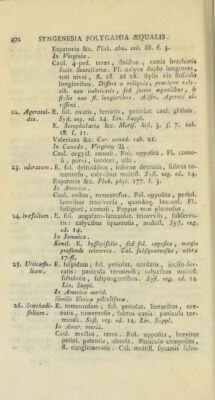 472 SYNGENESIA POLYGAMIA ÆQUALIS.
Eupatoria &c. Pluk. alm. tab. 88. f. 3.
In Virginia.
Caul. 4-ped. teres, strictus, ramis brachiatis
facie Scutellariæ. Fl. calyce duplo longiores,
toti nivei, fl. 18. ad 28. stylis vix flosculis
longioribus. Differt a reliquis, præcipue caly-
cib. non imbricatis, sed foliis æqualibus, &
stylis non fl. longioribus. Affin. Agerati al-
tissimi.
22. Ageratoi- E. fol. ovatis, serratis, petiolat. caul. glabro.
des. Syst. veg. ed. 14. Lin. Suppl.
E. Scrophularia &c. Moris. hist. 3. f. 7. tab.
18. f. 11.
Valeriana &c. Cor. canad. tab. 21.
In Canada, Virginia
Caul. orgyal. ramosi. Fol. opposita. Fl. como-
si, parvi, inodori, albi.
23. odoratum. E. fol. deltoidibus, inferne dentatis, subtus to-
mentosis, calycibus multifl. Syst. veg. ed. 14.
Eupatoria &c. Pluk. phyt. 177. f. 3.
In America.
Caul. rectus, tomentosus. Fol. opposita, petiol.
latioribus
fastigiati, conferti. Pappus non plumosus
24. ivæfolium E. fol. angulato-lanceolat. trinerviis, subserra-
tis: calycibus squarrosis, multifl. Syst. veg. ed.
14.
In Jamaica.
Simil. E. hyssopifolio, sed fol. opposita, magis
profunde trinervia. Cal. subsquarrosior, ultra
17-fl.
25. Urticæfo- E. hispidum; fol. petiolat. cordatis, inciso-ser-
lium. ratis: panicula terminali; calycibus multifl:
subulatis, subpungentibus. Syst. veg. ed. 14.
Lin. Suppl.
In America merid.
Simile Urticæ piluliferæ.
26. Stœchadi- E. tomentosum; fol. petiolat. linearibus, cre-
folium. natis, tomentosis, subtus canis: panicula ter-
minali. Syst. veg. ed. 14. Lin. Suppl.
In Amer. merid.
Caul. erectus, teres. Fol. opposita, breviter
petiol. patentia, obtusa. Panicula composita,
fl. conglomeratis. Cal. multifl. squamis subu-